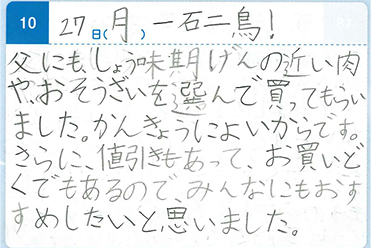 10 27日(月) 一石二鳥!
父にも、しょう味期げんの近い肉
や、おそうざいを選んで買ってもらい
ました。かんきょうによいからです。
さらに、値引きもあって、お買いど
くでもあるので、みんなにもおす
すめしたいと思いました。